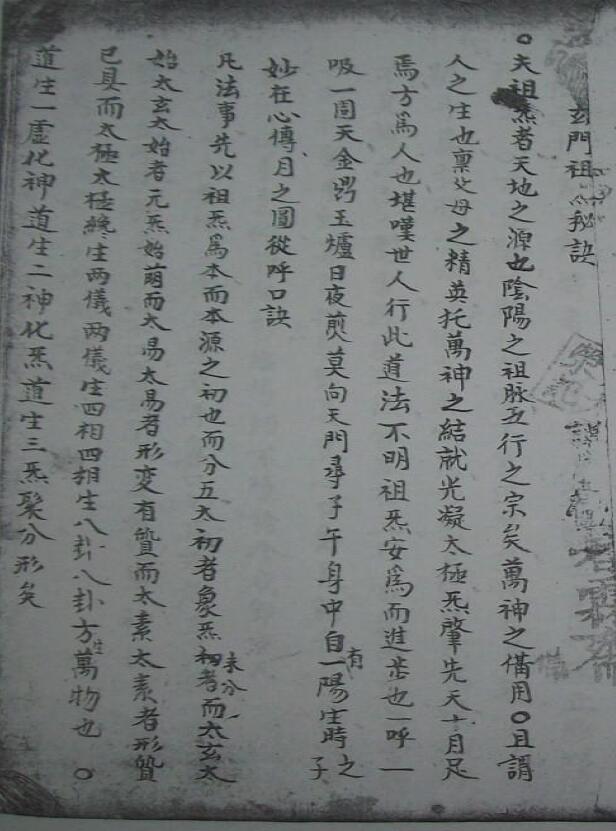 玄門祖炁秘訣
○夫祖炁者天地之源也陰陽之祖脉五行之宗矣萬神之俻用○且謂
人之生也稟父母之精英托萬神之結就光凝太極炁肇先天十月足
焉方爲人也堪嘆世人行此道法不明祖炁安爲而進步也一呼一
吸一周天金鼎玉爐日夜煎莫向天門尋子午身中自有一陽生時之子
妙在心傳月之圓從呼口訣
凡法事先以祖炁爲本而本源之初也而分五太初者象炁未分初者而太玄太
始太玄太始者元炁始萌而太易太易者形变有質而太素太素者形質
已具而太極太極終生两儀两儀生四相四相生八卦八卦方生萬物也○
道生一虛化神道生二神化炁道生三炁髮分形矣